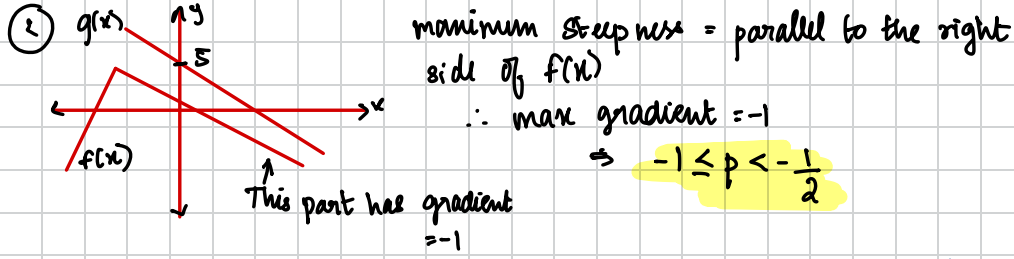 ② g(x) y
5
x
f(x)
This part has gradient
=-1
maximum steepness = parallel to the right
side of f(x)
∴ max gradient = -1
⇒ -1 ≤ p < -1/2